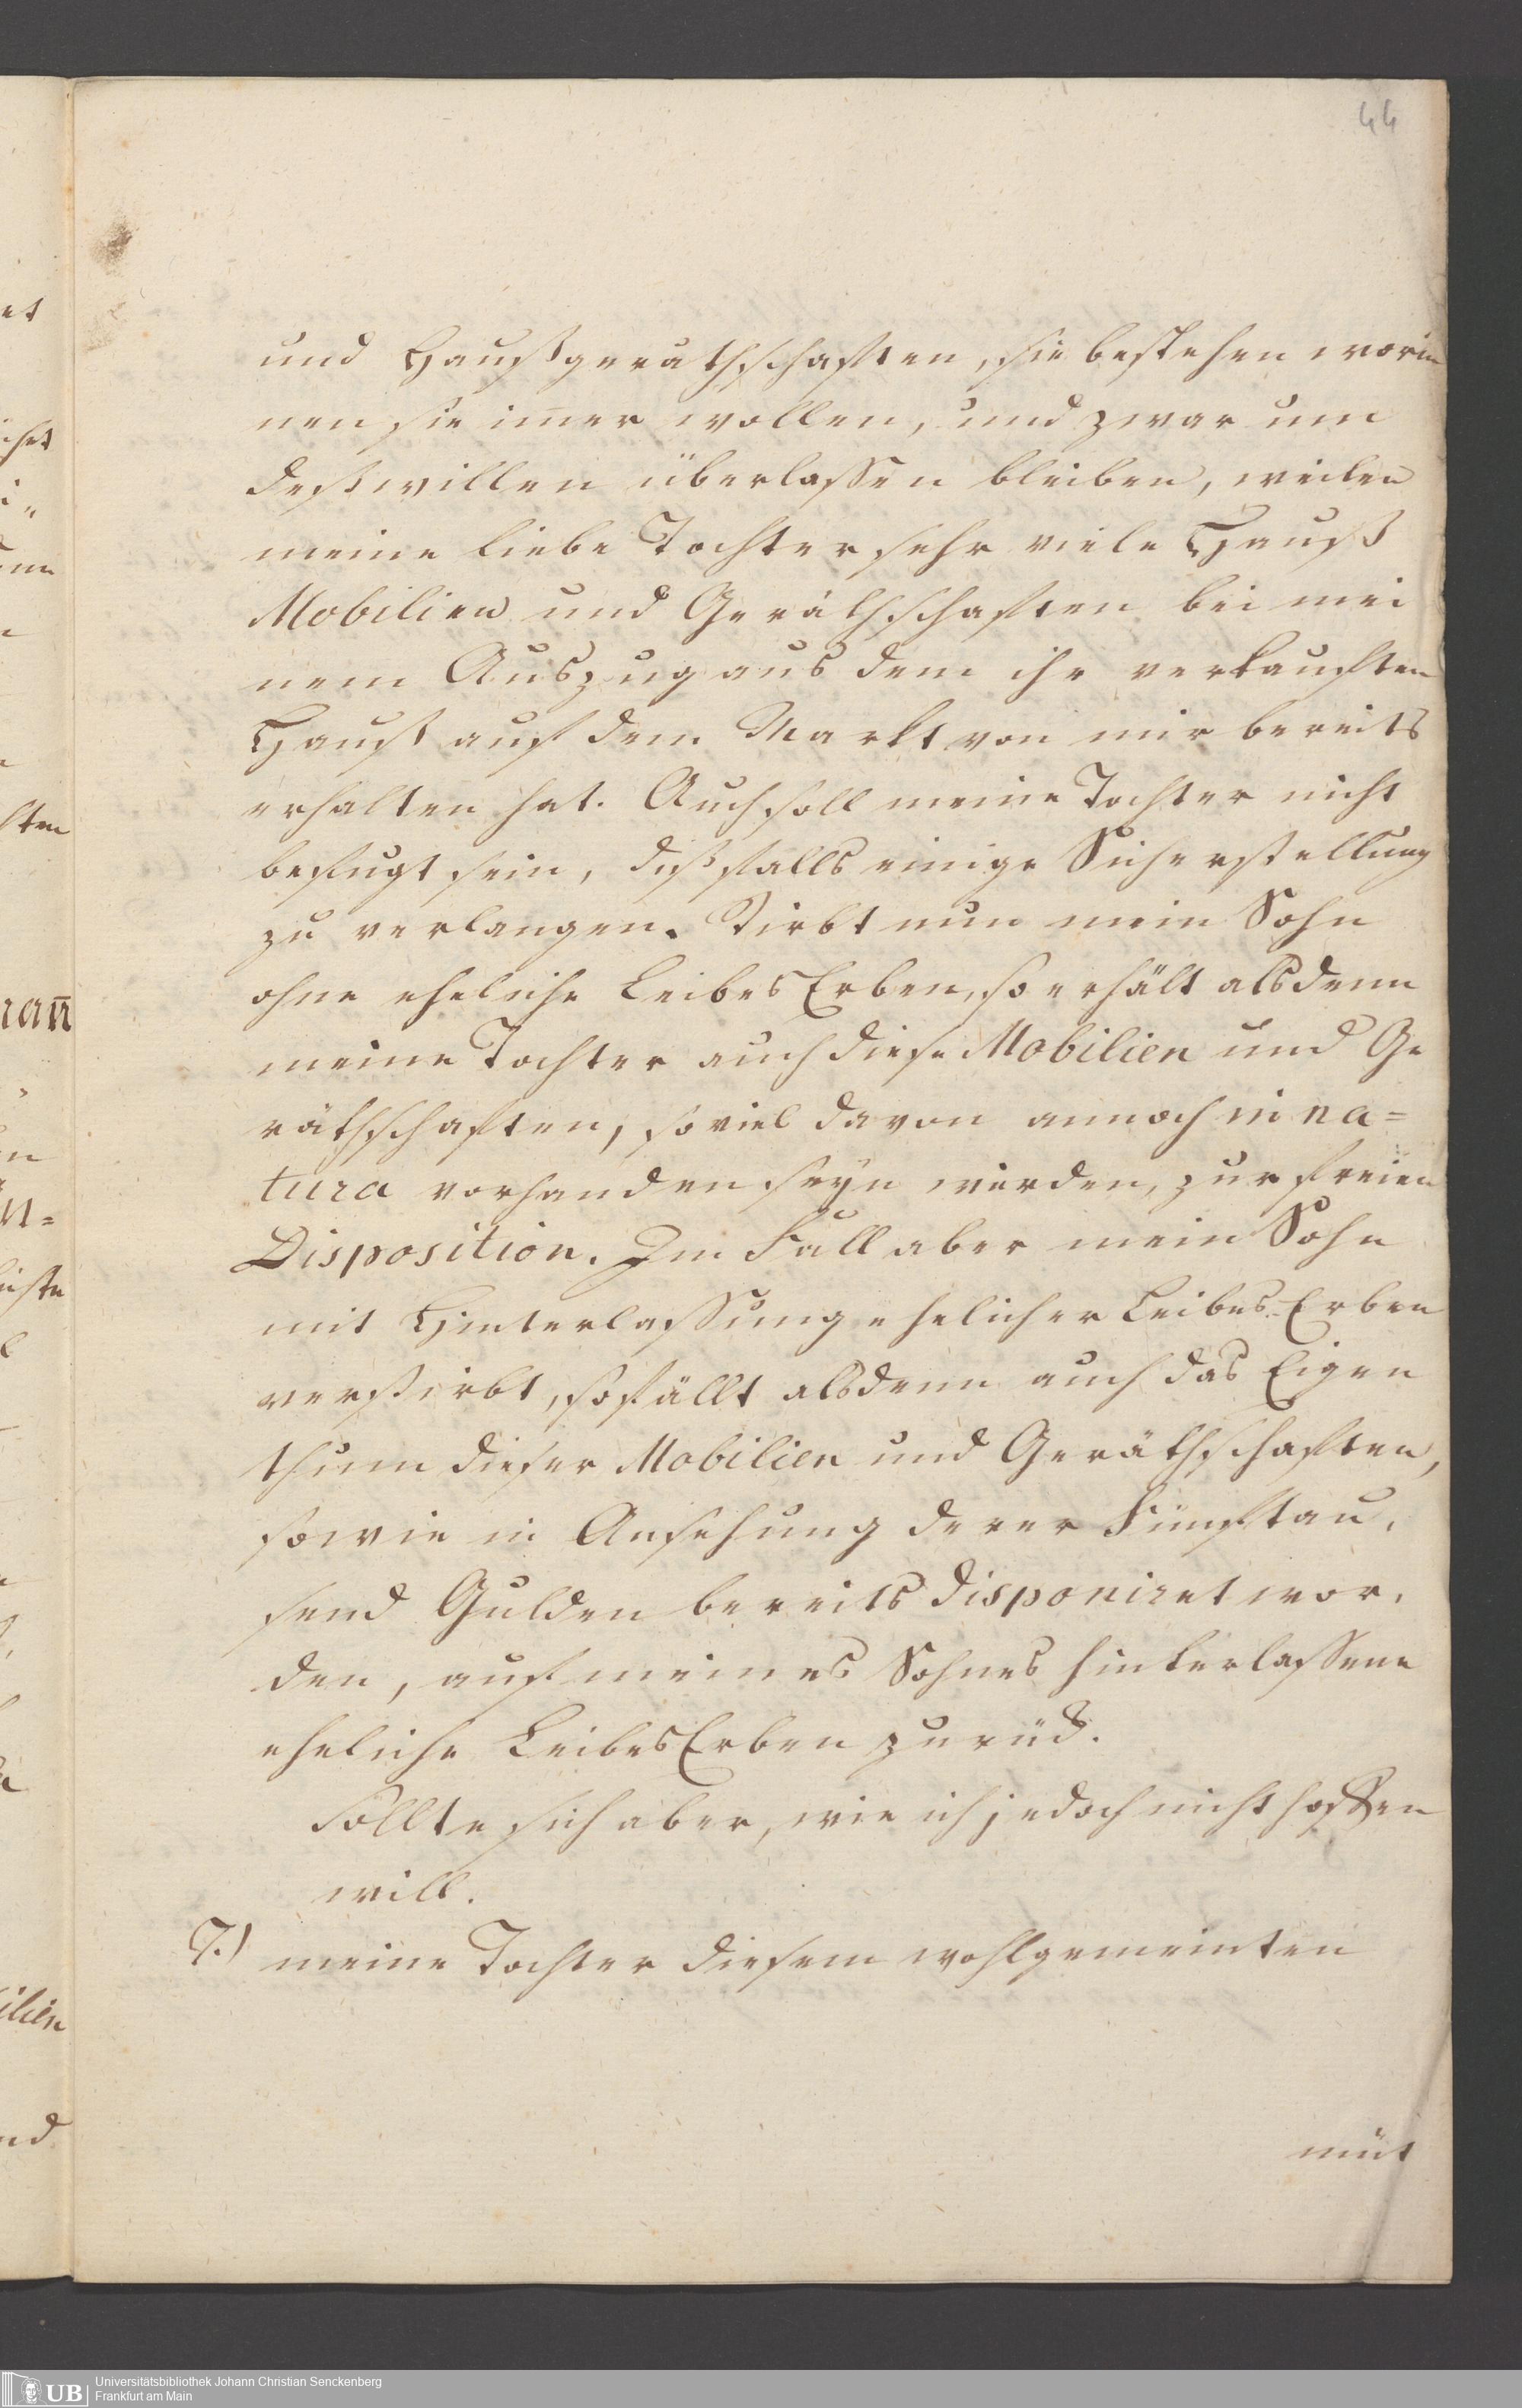 44
und Haußgeräthschaften, sie bestehen worin
nen sie im̄er wollen, und zwar um
deßwillen überlassen bleiben, weilen
meine liebe Tochter sehr viele Hauß
Mobilien und Geräthschaften bei mei
nem Auszug aus dem ihr verkauften
Hauß auf dem Markt von mir bereits
erhalten hat. Auch soll meine Tochter nicht
befugt sein, dißfalls einige Sicherstellung
zu verlangen. Stirbt nun mein Sohn
ohne eheliche LeibesErben, so erhält alsdenn
meine Tochter auch diese Mobilien und Ge
räthschaften, so viel davon annoch in na=
tura vorhanden seyn werden, zur freien
Disposition. Im Fall aber mein Sohn
mit Hinterlassung ehelicher Leibes-Erben
verstirbt, so fällt alsdenn auch das Eigen
thum dieser Mobilien und Geräthschaften,
sowie in Ansehung derer Fünftau,
send Gulden bereits disponiret wor,
den, auf meines Sohnes hinterlassene
eheliche LeibesErben zurück.
Sollte sich aber, wie ich jedoch nicht hoffen
will.
7.) meine Tochter diesem wohlgemeinten
müt
UB
Universitätsbibliothek Johann Christian Senckenberg
Frankfurt am Main